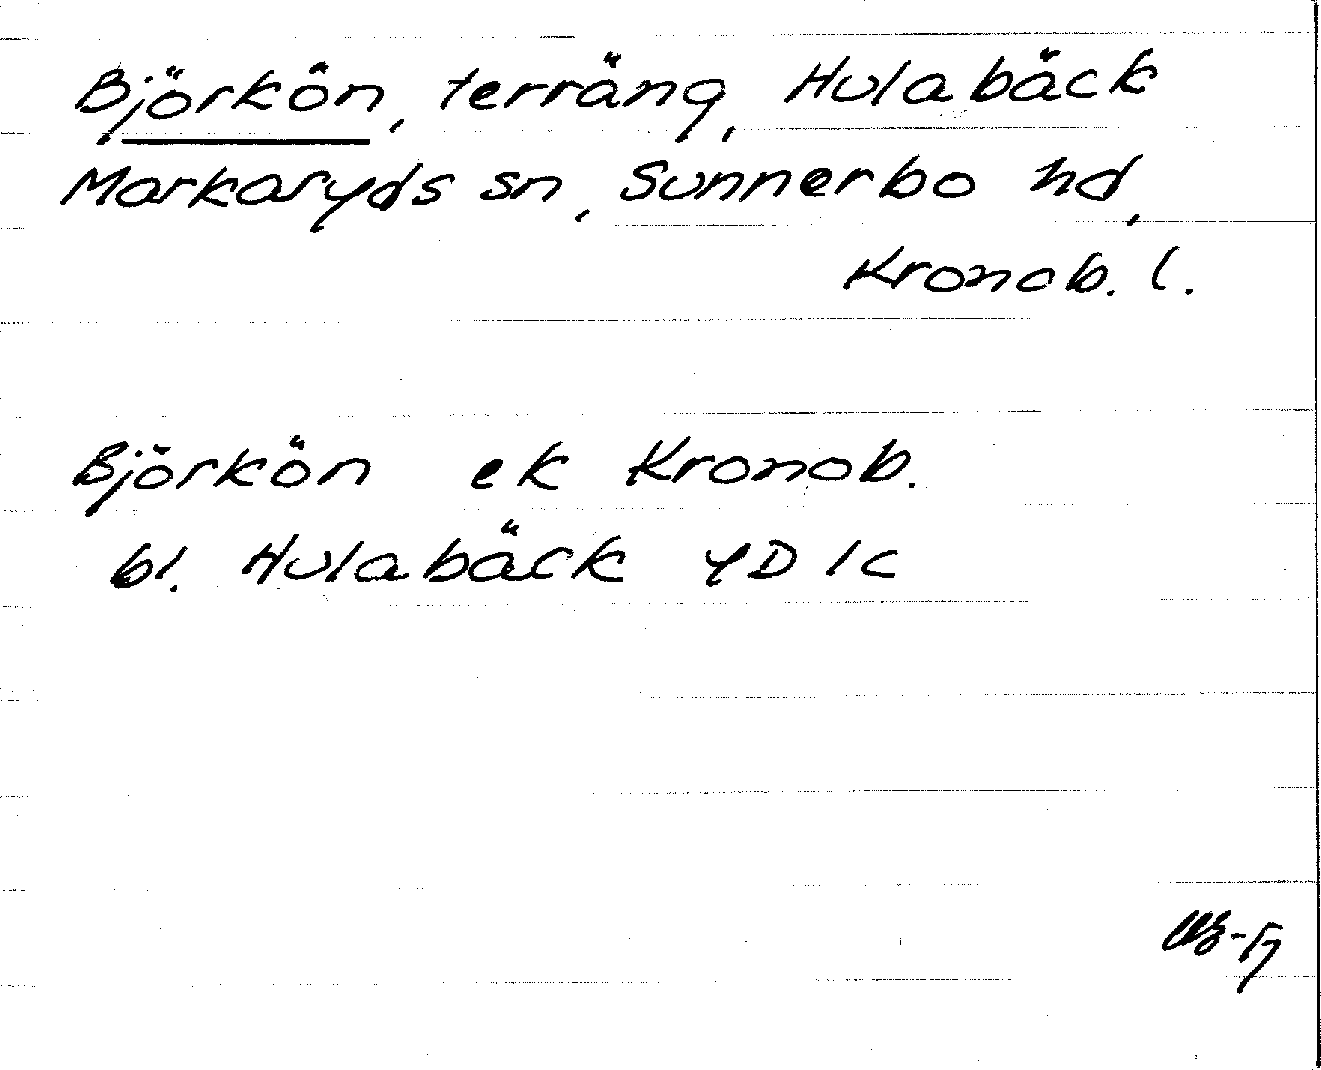 Björkön, terräng, Hulabäck
Markaryds sn, Sunnerbo hd,
Kronob. l.
Björkön ek Kronob.
bl. Hulabäck YD 1c